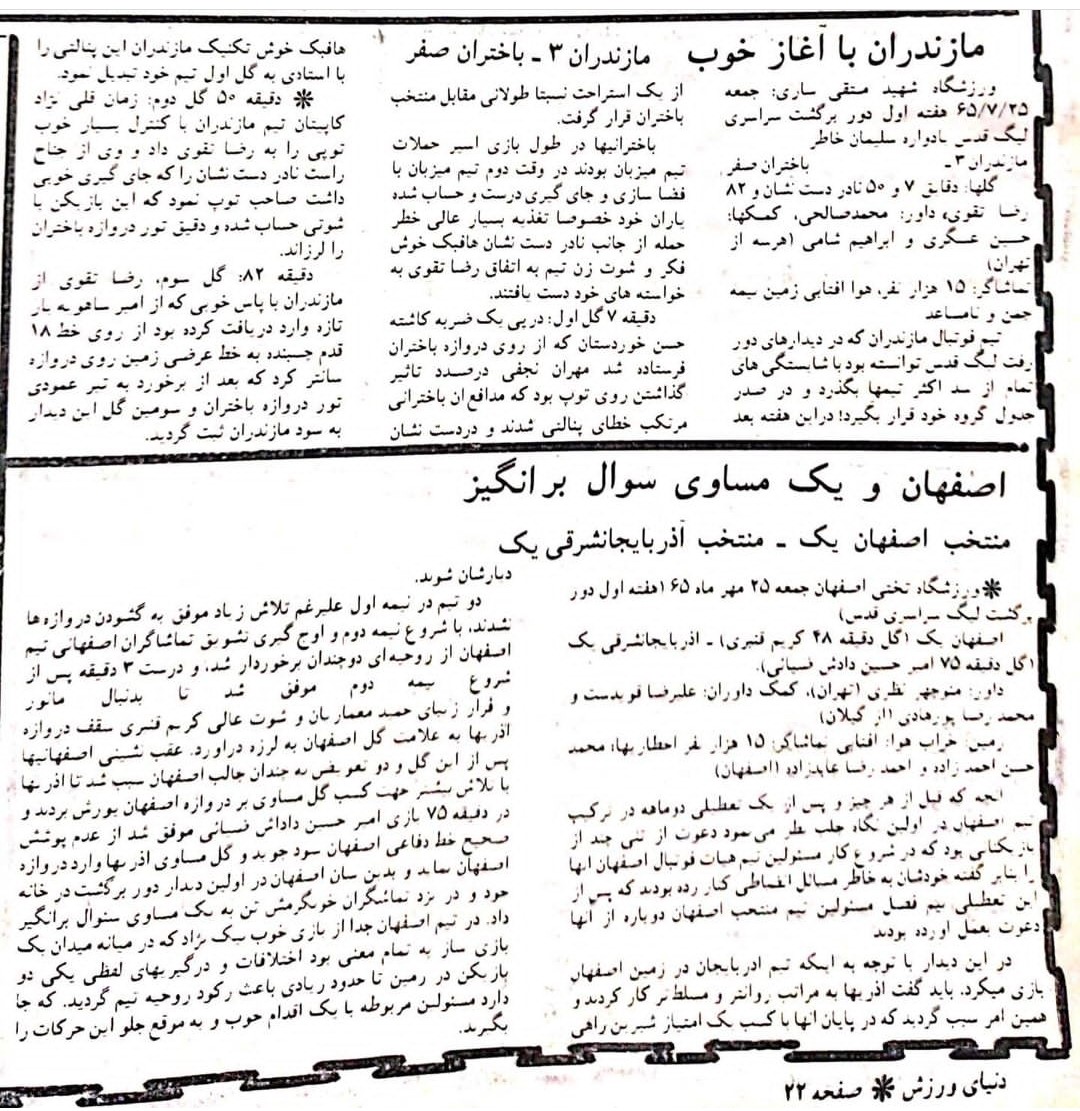 مازندران با آغاز خوب
مازندران ۳ ـ باختران صفر
ورزشگاه شهید متقی ساری: جمعه
۶۵/۷/۲۵ هفته اول دور برگشت سراسری
لیگ قدس یادواره سلیمان خاطر
مازندران ۳ـ باختران صفر
گلها: دقایق ۷ و ۵۰ نادر دست نشان و ۸۲
رضا تقوی، داور: محمدصالحی، کمکها:
حسن عسگری و ابراهیم شامی (هرسه از
تهران)
تماشاگر: ۱۵ هزار نفر، هوا افتابی زمین نیمه
چمن و نامساعد
تیم فوتبال مازندران که در دیدارهای دور
رفت لیگ قدس توانسته بود با شایستگی های
تمام از سد اکثر تیمها بگذرد و در صدر
جدول گروه خود قرار بگیرد؛ دراین هفته بعد
از یک استراحت نسبتا طولانی مقابل منتخب
باختران قرار گرفت.
باخترانیها در طول بازی اسیر حملات
تیم میزبان بودند در وقت دوم تیم میزبان با
فضا سازی و جای گیری درست و حساب شده
یاران خود خصوصا تغذیه بسیار عالی خط
حمله از جانب نادر دست نشان هافبک خوش
فکر و شوت زن تیم به اتفاق رضا تقوی به
خواسته های خود دست یافتند.
دقیقه ۷ گل اول: درپی یک ضربه کاشته
حسن خوردستان که از روی دروازه باختران
فرستاده شد مهران نجفی درصدد تاثیر
گذاشتن روی توپ بود که مدافعان باخترانی
مرتکب خطای پنالتی شدند و دردست نشان
هافبک خوش تکنیک مازندران این پنالتی را
با استادی به گل اول تیم خود تبدیل نمود.
❋ دقیقه ۵۰ گل دوم: زمان قلی نژاد
کاپیتان تیم مازندران با کنترل بسیار خوب
توپی را به رضا تقوی داد و وی از جناح
راست نادر دست نشان را که جای گیری خوبی
داشت صاحب توپ نمود که این بازیکن با
شوتی حساب شده و دقیق تور دروازه باختران
را لرزاند.
دقیقه ۸۲: گل سوم، رضا تقوی از
مازندران با پاس خوبی که از امیر ساهو به یار
تازه وارد دریافت کرده بود از روی خط ۱۸
قدم چسبنده به خط عرضی زمین روی دروازه
سانتر کرد که بعد از برخورد به تیر عمودی
تور دروازه باختران و سومین گل این دیدار
به سود مازندران ثبت گردید.
اصفهان و یک مساوی سوال برانگیز
منتخب اصفهان یک ـ منتخب آذربایجانشرقی یک
❋ورزشگاه تختی اصفهان جمعه ۲۵ مهر ماه ۶۵ (هفته اول دور
برگشت لیگ سراسری قدس)
اصفهان یک (گل دقیقه ۴۸ کریم قنبری) ـ اذربایجانشرقی یک
(گل دقیقه ۷۵ امیر حسین دادش ضیائی).
داور: منوچهر نظری (تهران)، کمک داوران: علیرضا قویدست و
محمد رضا پورهادی (از گیلان)
زمین: خراب هوا: افتابی تماشاگر: ۱۵ هزار نفر اخطاریها: محمد
حسن احمد زاده و احمد رضا عابدزاده (اصفهان)
انچه که قبل از هر چیز و پس از یک تعطیلی دوماهه در ترکیب
تیم اصفهان در اولین نگاه جلب نظر می نمود دعوت از تنی چند از
بازیکنانی بود که در شروع کار مسئولین تیم هیات فوتبال اصفهان انها
را بنابر گفته خودشان به خاطر مسائل انضباطی کنار زده بودند که پس از
این تعطیلی نیم فصل مسئولین تیم منتخب اصفهان دوباره از آنها
دعوت بعمل اورده بودند
در این دیدار با توجه به اینکه تیم اذربایجان در زمین اصفهان
بازی میکرد، باید گفت اذریها به مراتب روانتر و مسلط تر کار کردند و
همین امر سبب گردید که در پایان انها با کسب یک امتیاز شیرین راهی
دیارشان شوند.
دو تیم در نیمه اول علیرغم تلاش زیاد موفق به گشودن دروازه ها
نشدند، با شروع نیمه دوم و اوج گیری تشویق تماشاگران اصفهانی تیم
اصفهان از روحیه ای دوچندان برخوردار شد، و درست ۳ دقیقه پس از
شروع نیمه دوم موفق شد تا بدنبال مانور
و فرار زیبای حمید معماریان و شوت عالی کریم قنبری سقف دروازه
اذریها به علامت گل اصفهان به لرزه دراورد. عقب نشینی اصفهانیها
پس از این گل و دو تعویض نه چندان جالب اصفهان سبب شد تا اذریها
با تلاش بیشتر جهت کسب گل مساوی بر دروازه اصفهان یورش بردند و
در دقیقه ۷۵ بازی امیر حسین داداش ضیائی موفق شد از عدم پوشش
صحیح خط دفاعی اصفهان سود جوید و گل مساوی اذریها وارد دروازه
اصفهان نماید و بدین سان اصفهان در اولین دیدار دور برگشت در خانه
خود و در نزد تماشگران خونگرمش تن به یک مساوی سئوال برانگیر
داد. در تیم اصفهان جدا از بازی خوب بیک نژاد که در میانه میدان یک
بازی ساز به تمام معنی بود اختلافات و درگیریهای لفظی یکی دو
بازیکن در زمین تا حدود زیادی باعث رکود روحیه تیم گردید، که جا
دارد مسئولین مربوطه با یک اقدام خوب و به موقع جلو این حرکات را
بگیرند.
دنیای ورزش ❋ صفحه ۲۲